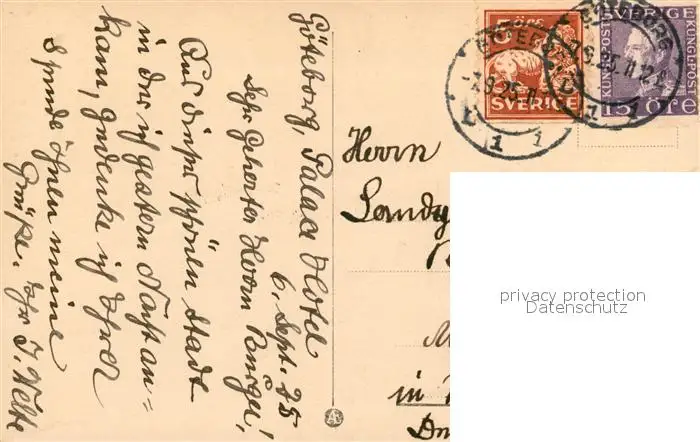 Göteborg, Palace Hotel
6. Sept. 25
Sehr geehrter Herr
Aus dieser schönen Stadt
in der ich gestern Nacht an=
kam, gedenke ich Ihrer
sende Ihnen meine
Grüße. Ihr J. Welte
5 ÖRE
SVERIGE
SVERIGE
KUNGL·POST
KUNGL·POST
15 ÖRE
GÖTEBORG
1
1
Herrn
in
privacy protection
Datenschutz